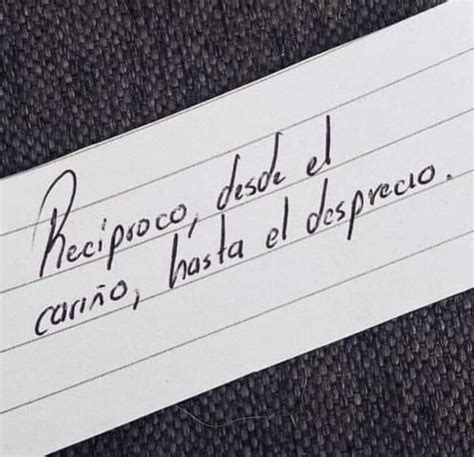 Recíproco, desde el
cariño, hasta el desprecio.